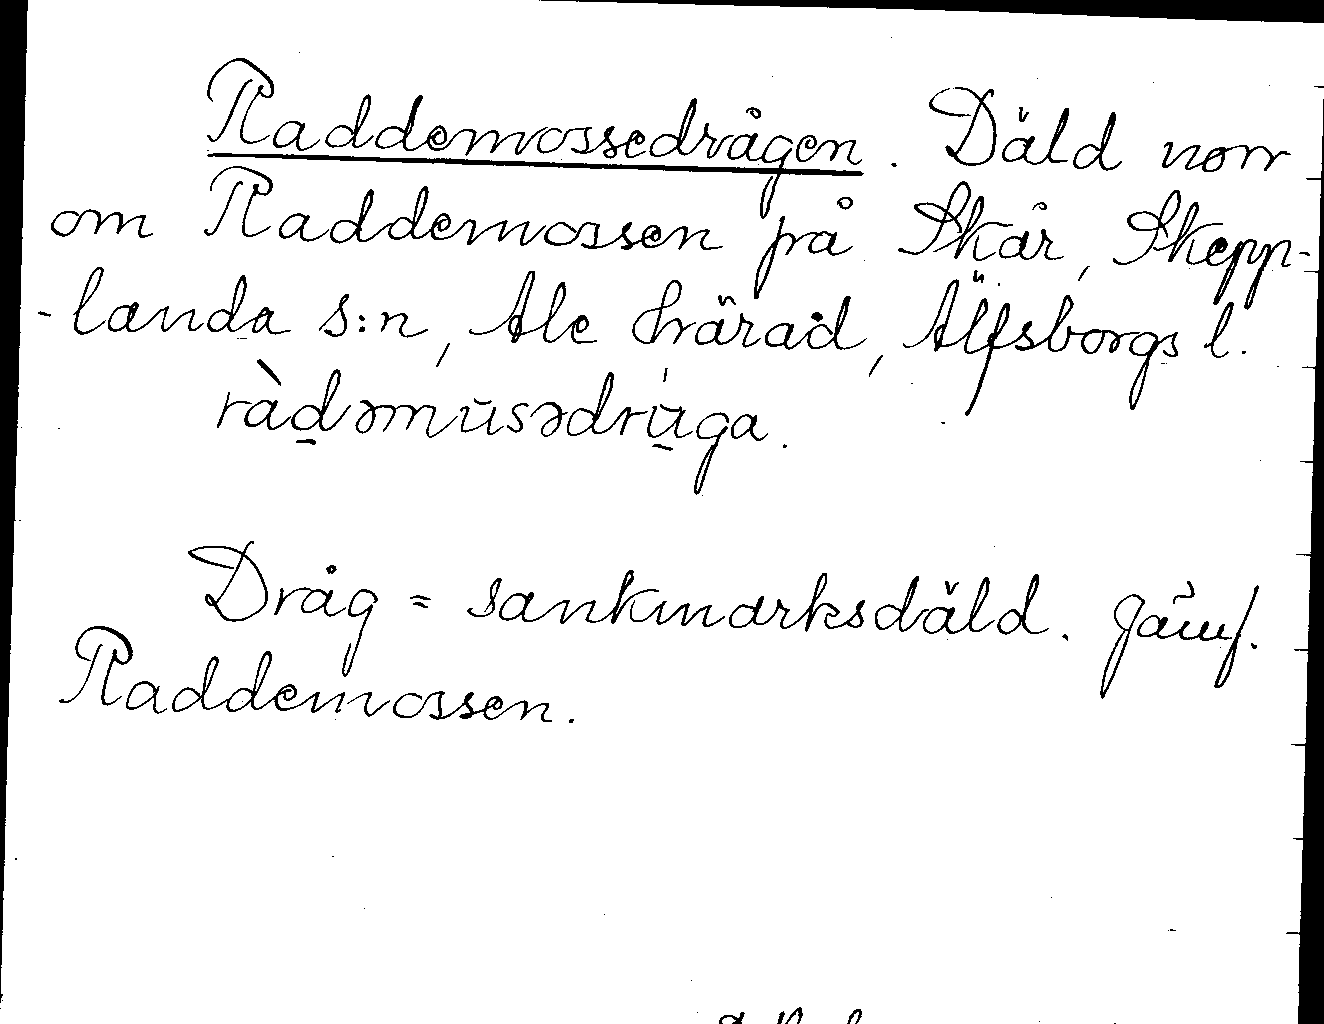 Raddemossedrågen. Däld norr
om Raddemossen på Skår, Skepp-
-landa s:n, Ale härad, Älfsborgs l.
ràdəmūsədrúga.
Dråg = sankmarksdäld. Jämf.
Raddemossen.